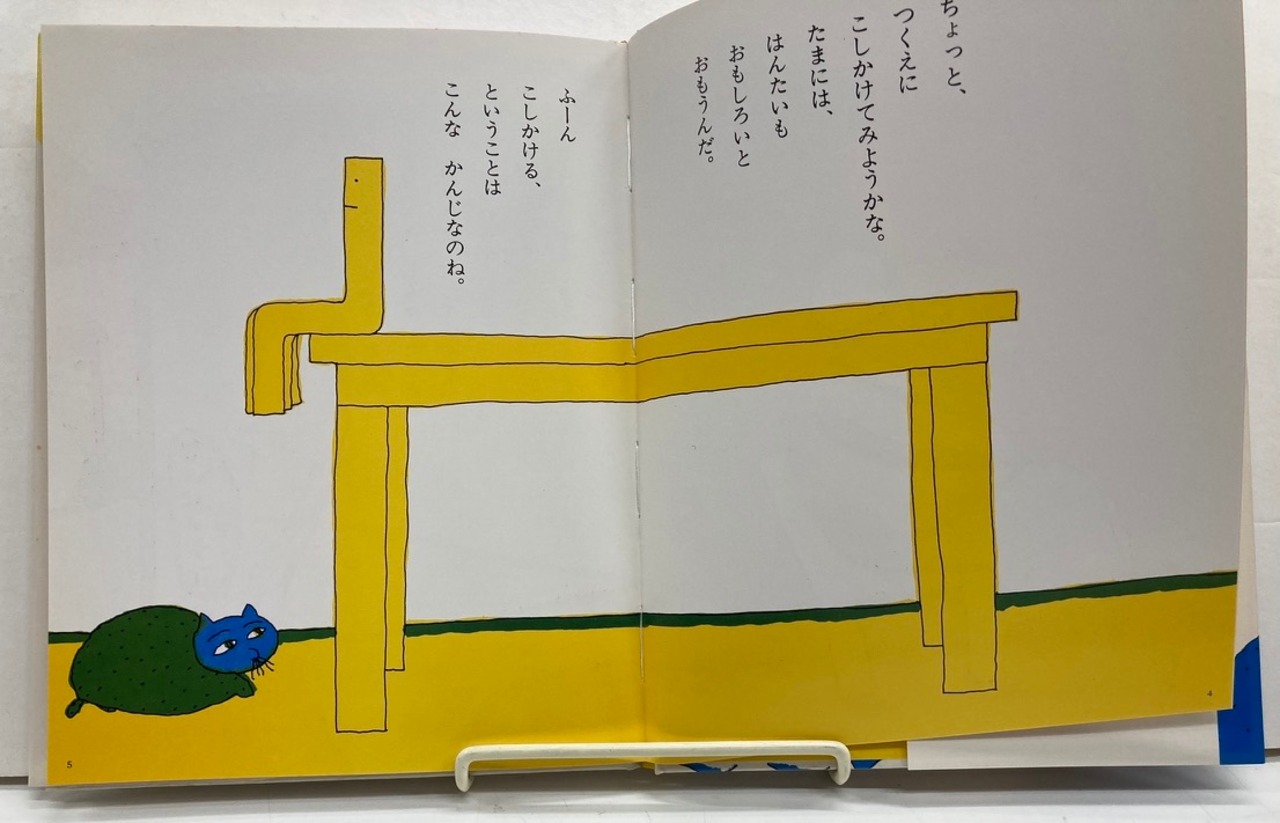 ちょっと、
つくえに
こしかけてみようかな。
たまには、
はんたいも
おもしろいと
おもうんだ。
4
ふーん
こしかける、
ということは
こんな　かんじなのね。
5